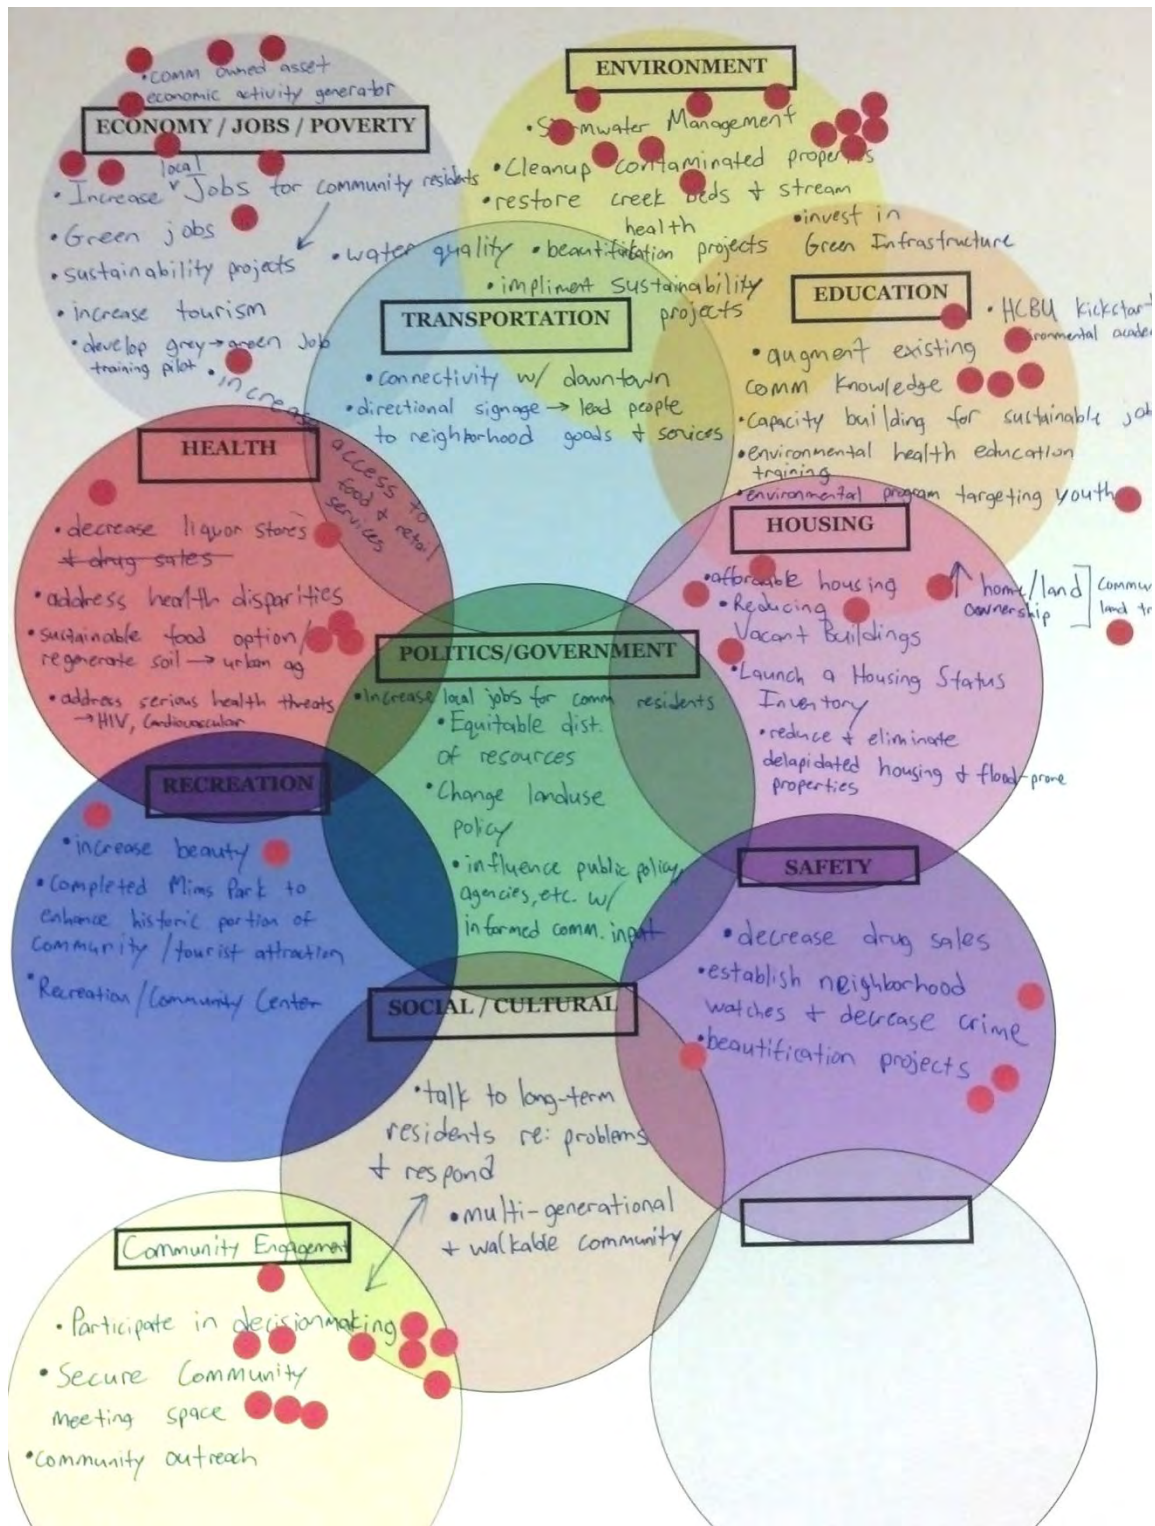 • comm owned asset
economic activity generator
ECONOMY / JOBS / POVERTY
local
• Increase ˅ Jobs for community residents
• Green jobs
• sustainability projects
• increase tourism
• develop grey → green Job
training pilot
• increase access to
food & retail
services
ENVIRONMENT
• Stormwater Management
• Cleanup contaminated properties
• restore creek beds & stream
health
• water quality
• beautification projects
• impliment sustainability
projects
• invest in
Green Infrastructure
TRANSPORTATION
• connectivity w/ downtown
• directional signage → lead people
to neighborhood goods & services
EDUCATION
• HCBU Kickstar
• augment existing
comm knowledge
• capacity building for sustainable
• environmental health education
training
• environmental program targeting youth
HEALTH
• decrease liquor stores
& drug sales
• address health disparities
• sustainable food option/
regenerate soil → urban ag
• address serious health threats
→ HIV, Cardiovascular
HOUSING
• affordable housing
• Reducing
Vacant Buildings
• Launch a Housing Status
Inventory
• reduce & eliminate
delapidated housing & flood-prone
properties
↑ home/land
ownership
land
POLITICS/GOVERNMENT
• Increase local jobs for comm residents
• Equitable dist.
of resources
• Change landuse
policy
• influence public policy,
agencies, etc. w/
informed comm. input
RECREATION
• increase beauty
• Completed Mims Park to
enhance historic portion of
community / tourist attraction
• Recreation/Community Center
SAFETY
• decrease drug sales
• establish neighborhood
watches & decrease crime
• beautification projects
SOCIAL / CULTURAL
• talk to long-term
residents re: problems
& respond
• multi-generational
& walkable community
Community Engagement
• Participate in decisionmaking
• Secure Community
meeting space
• community outreach